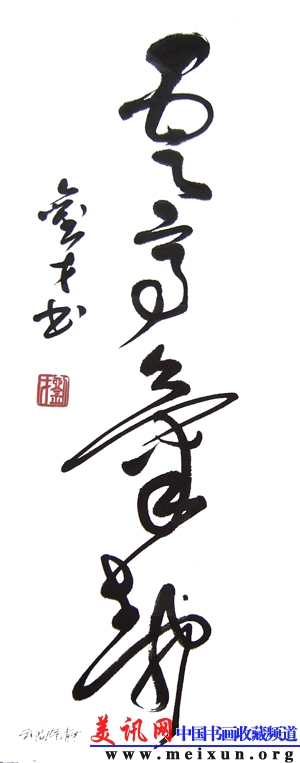 雲高氣静
才书
美讯网 中国书画收藏频道
www.meixun.org